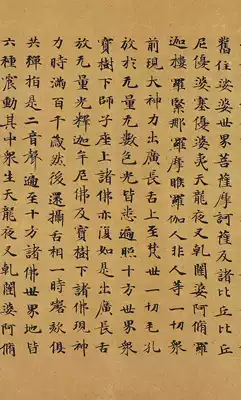 舊住娑婆世界菩薩摩訶薩及諸比丘比丘
尼優婆塞優婆夷天龍夜叉乹闥婆阿脩羅
迦樓羅緊那羅摩睺羅伽人非人等一切衆
前現大神力出廣長舌上至梵世一切毛孔
放於无量无數色光皆悉遍照十方世界衆
寶樹下師子座上諸佛亦復如是出廣長舌
放无量光釋迦牟尼佛及寶樹下諸佛現神
力時滿百千歲然後還攝舌相一時謦欬俱
共彈指是二音聲遍至十方諸佛世界地皆
六種震動其中衆生天龍夜叉乹闥婆阿脩